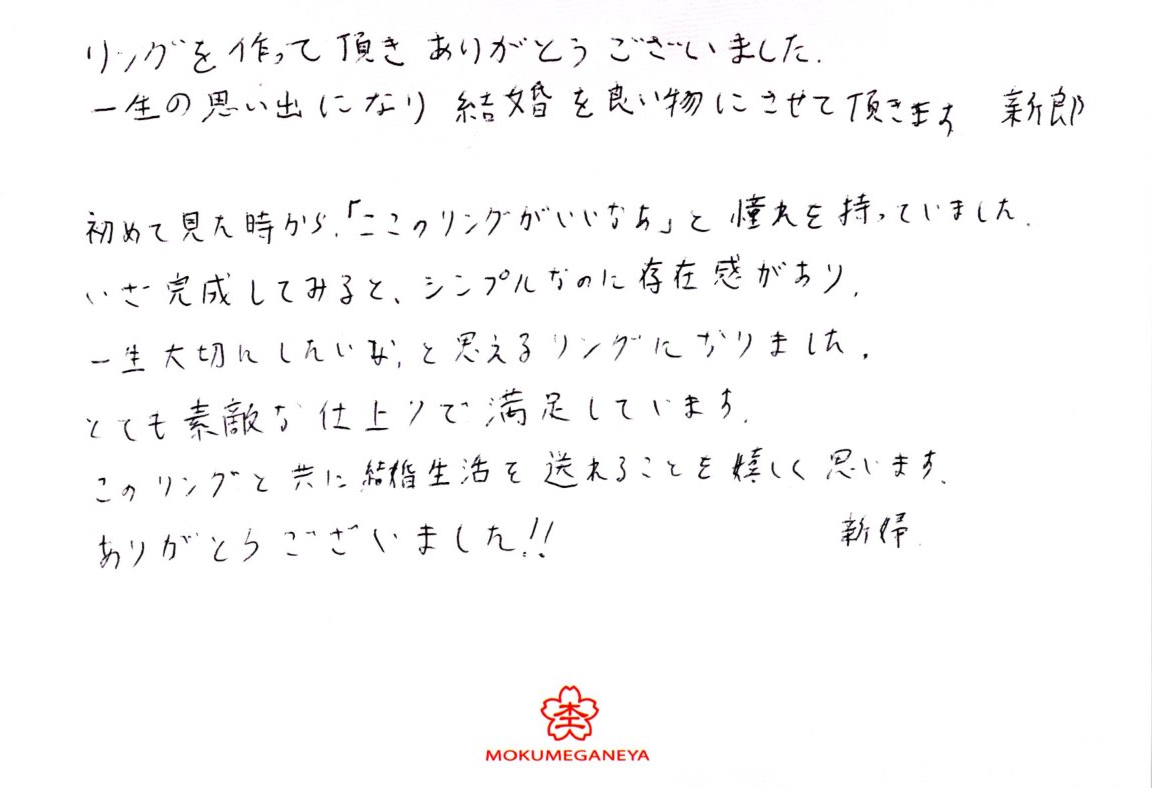 リングを作って頂きありがとうございました.
一生の思い出になり結婚を良い物にさせて頂きます 新郎
初めて見た時から、「ここのリングがいいなあ」と憧れを持っていました.
いざ完成してみると、シンプルなのに存在感があり、
一生大切にしたいな、と思えるリングになりました。
とても素敵な仕上りで満足しています.
このリングと共に結婚生活を送れることを嬉しく思います.
ありがとうございました!! 新婦.
MOKUMEGANEYA